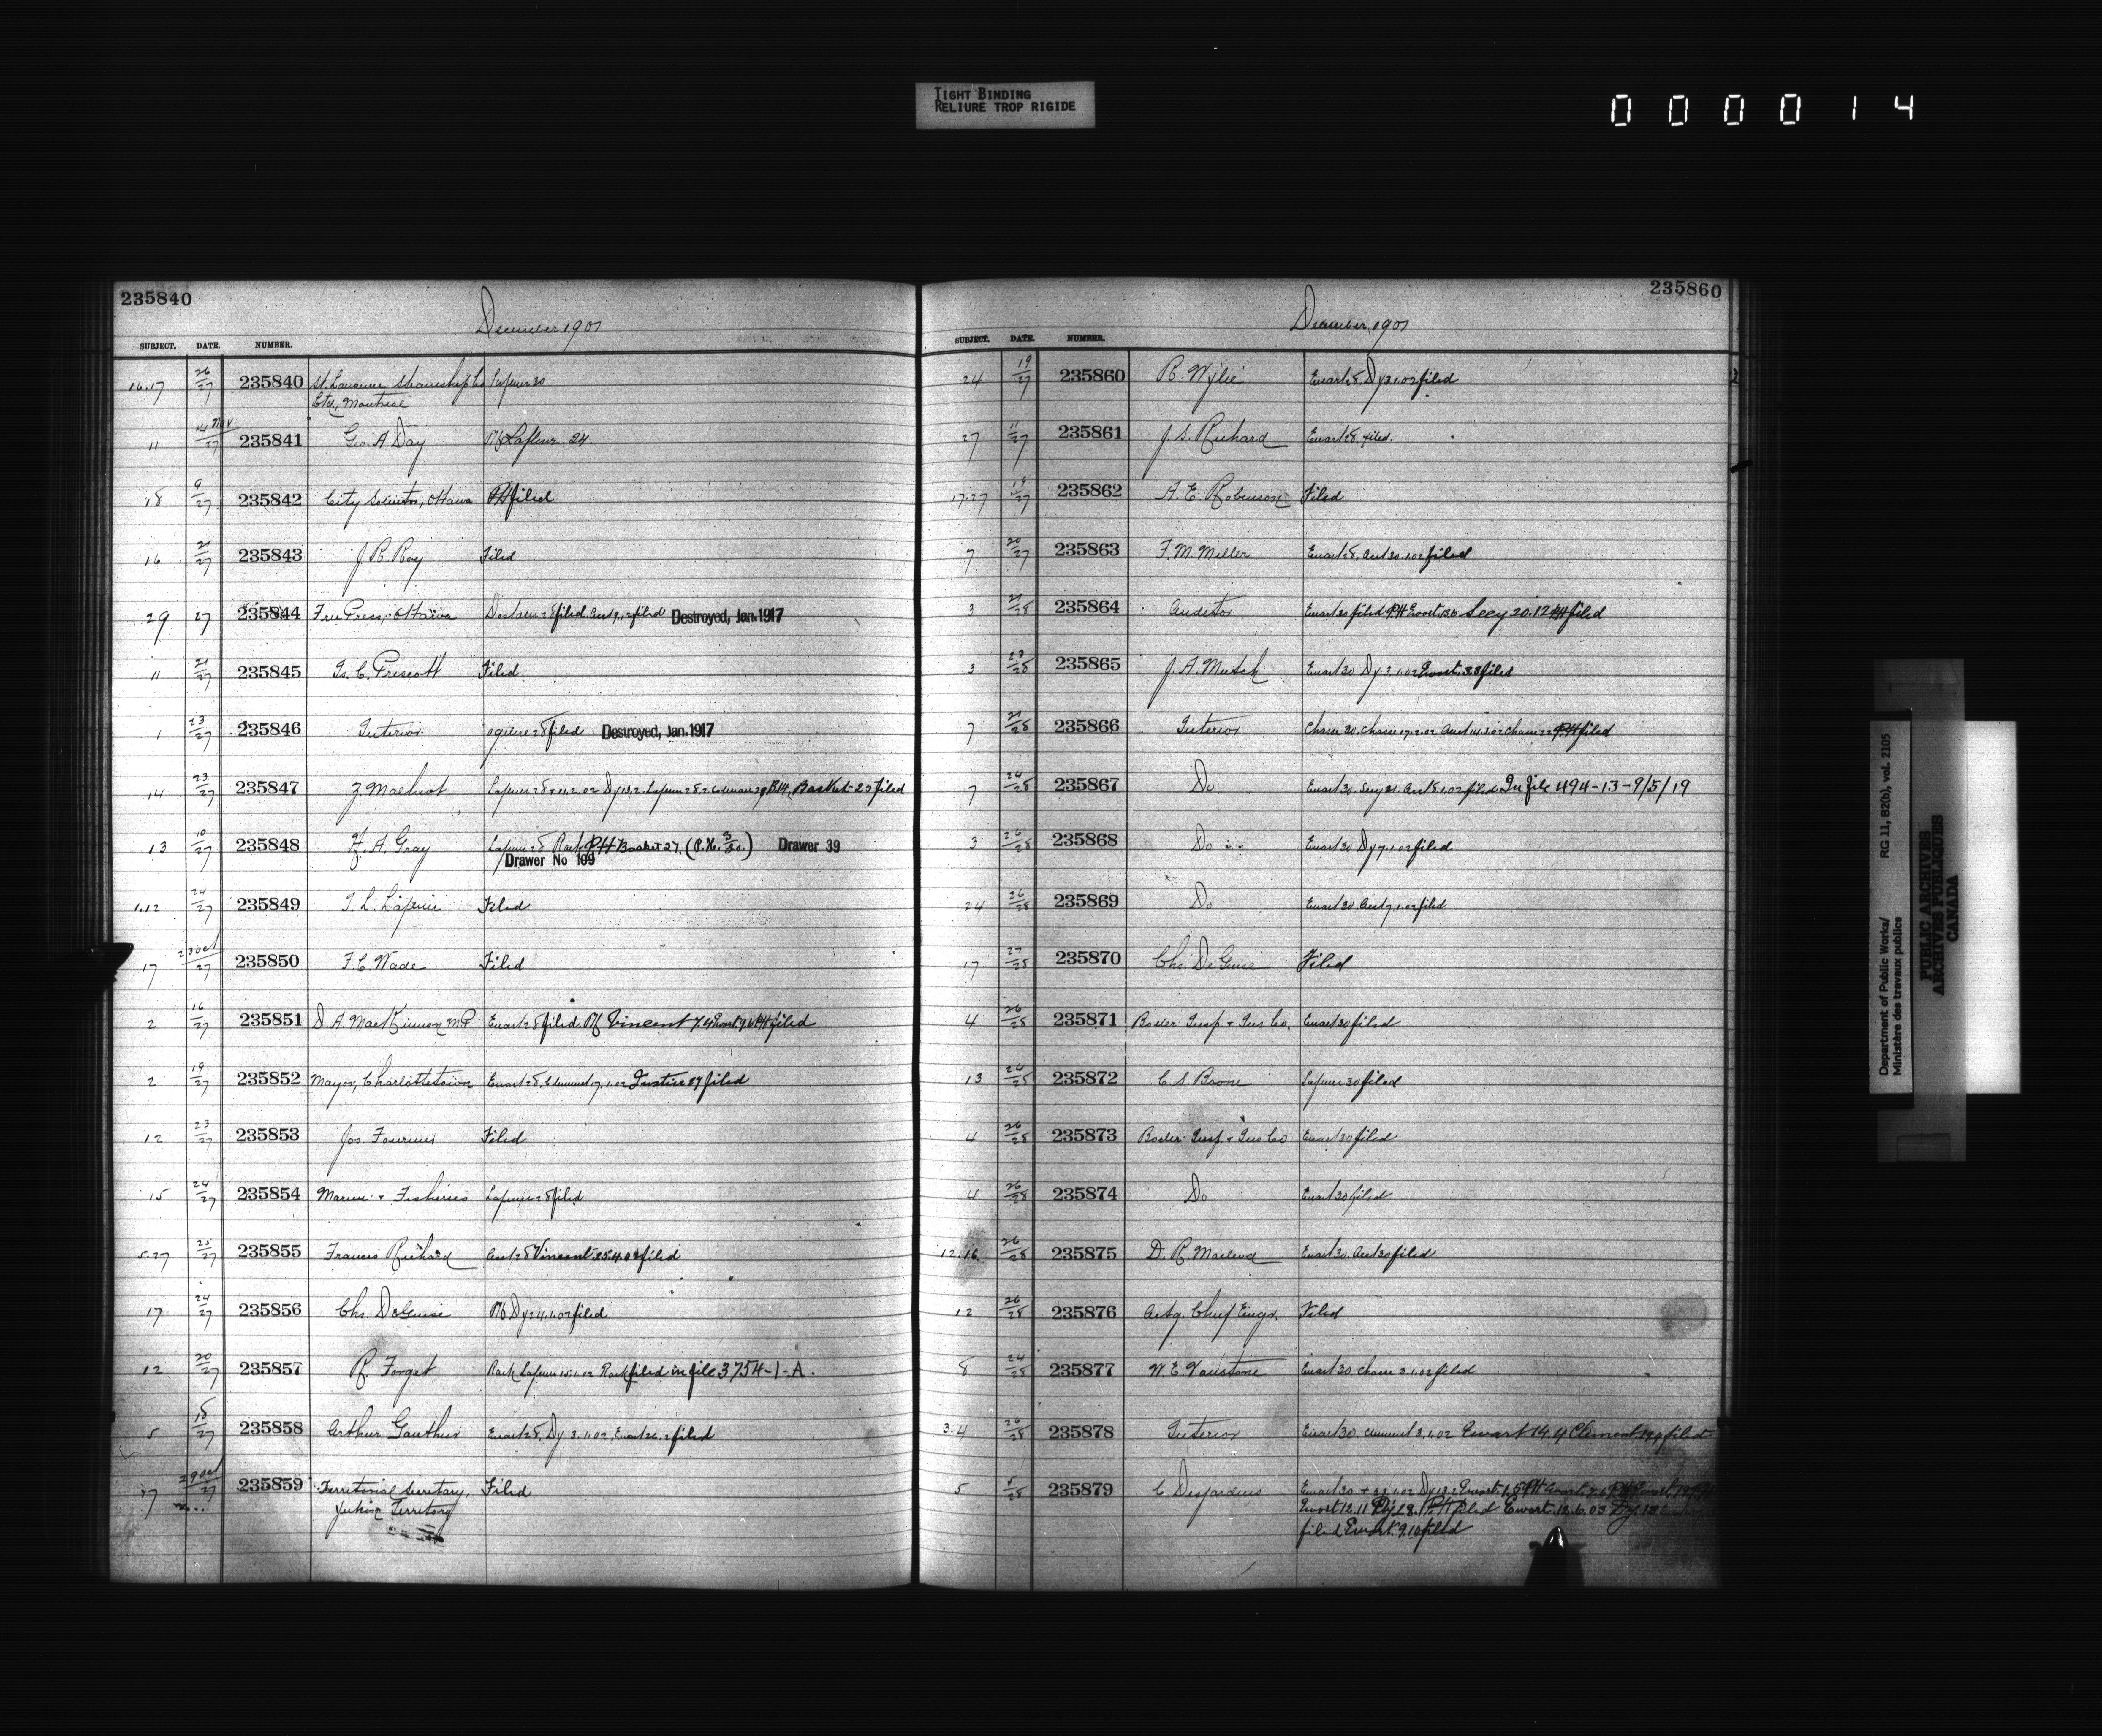 TIGHT BINDING
RELIURE TROP RIGIDE
000014
235840
December 1901
SUBJECT. DATE. NUMBER.
16.17 26/27 235840 St. Lawrence Steamship Co Lafleur 30
Ltd., Montreal
11 14 Nov/27 235841 Geo. A Day Lafleur 24.
18 9/27 235842 City Solicitor, Ottawa PH filed
16 21/27 235843 J. R. Roy Filed
29 27 235844 Free Press, Ottawa filed filed Destroyed, Jan. 1917
11 21/27 235845 C. Prescott Filed
1 23/27 235846 Interior Ogilvie 28 filed Destroyed, Jan. 1917
14 23/27 235847 Z Malhiot Basket 23 filed
13 10/27 235848 H. A. Gray Basket 27. Drawer 39
Drawer No 109
1.12 24/27 235849 T. L. Lapierre Filed
17 23 Oct/27 235850 F. C. Wade Filed
2 16/27 235851 D A. MacKinnon MP Ewart 28 filed Vincent 7.4 Ewart 9.6 PH filed
2 19/27 235852 Mayor, Charlottetown Ewart 28, Clement 17.1.02 Justice 29 filed
12 23/27 235853 Jos. Fournier Filed
15 24/27 235854 Marine & Fisheries Lafleur 28 filed
5.27 25/27 235855 Francis Richard Acct 28 Vincent 25.4.02 filed
17 24/27 235856 Chs. DeGuise Dy 24.1.02 filed
12 20/27 235857 R. Forget Lafleur 15.1.02 filed in file 3754-1-A.
5 18/27 235858 Arthur Gauthier Ewart 28, Dy 3.1.02, Ewart 26.2 filed
17 29 Oct/27 235859 Territorial Secretary, Filed
Yukon Territory
235860
December, 1901
SUBJECT. DATE. NUMBER.
24 19/27 235860 R. Wylie Ewart 28, Dy 3.1.02 filed
27 11/27 235861 J. S. Richard Ewart 28, filed.
17.27 19/27 235862 A. E. Robinson Filed
7 20/27 235863 F. M. Miller Ewart 28, Acct 30.1.02 filed
3 21/28 235864 Auditor Ewart 30 filed PH Ewart Secy 20.12 PH filed
3 23/28 235865 J. A. Mutch Ewart 30 Dy. 3.1.02 Ewart 28 filed
7 21/28 235866 Interior Chasse 30. Chasse 17.2.02 Acct 14.3.02 Chasse 22 PH filed
7 24/28 235867 Do Ewart 30. Secy 31. Acct 8.1.02 filed In file 494-13-9/5/19
3 26/28 235868 Do Ewart 30 Dy 7.1.02 filed
24 26/28 235869 Do Ewart 30 Acct 7.1.02 filed
17 27/28 235870 Chs. DeGuise Filed
4 26/28 235871 Boiler Insp. & Ins Co. Ewart 30 filed
13 24/28 235872 C. S. Boone Lafleur 30 filed
4 26/28 235873 Boiler Insp. & Ins Co Ewart 30 filed
4 26/28 235874 Do Ewart 30 filed
12.16 26/28 235875 D. R Macleod Ewart 30. Acct 30 filed
12 26/28 235876 Actg. Chief Engr. Filed
8 24/28 235877 W. E. Vanstone Ewart 30. Chasse 3.1.02 filed
3.4 26/28 235878 Interior Ewart 30. Clement 3.1.02 Ewart 14.4 Clement filed
5 235879 C Desjardins Ewart 30
Ewart 12.11 PH filed Ewart. 12.6.03
filed Ewart. 9.10 filed
Department of Public Works/
Ministère des travaux publics
RG 11, B2(b), vol. 2105
PUBLIC ARCHIVES
ARCHIVES PUBLIQUES
CANADA